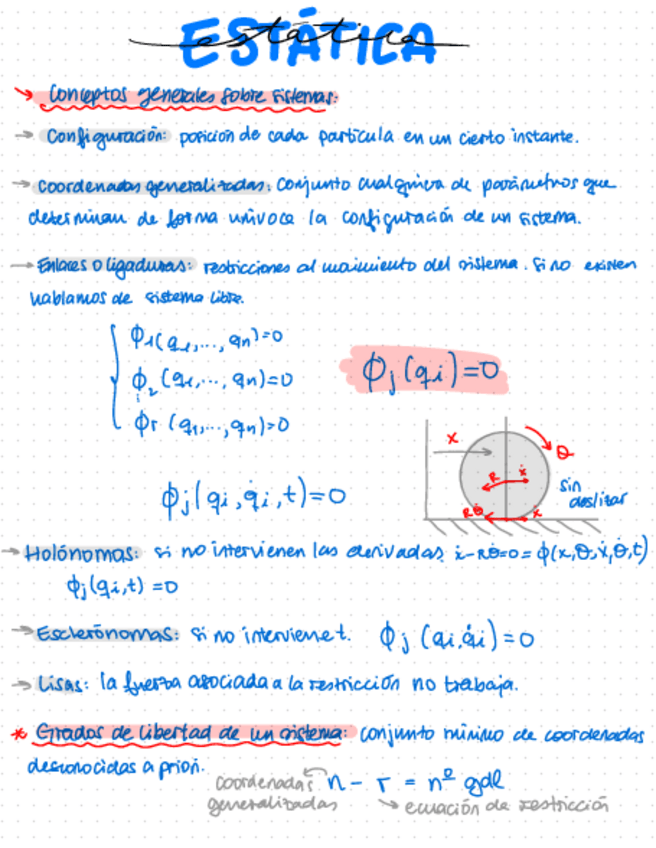 ESTÁTICA
estática
Conceptos generales sobre sistemas:
→ Configuración: posición de cada partícula en un cierto instante.
→ Coordenadas generalizadas: conjunto cualquiera de parámetros que
determinan de forma unívoca la configuración de un sistema.
→ Enlaces o ligaduras: restricciones al movimiento del sistema. Si no existen
hablamos de sistema libre.
ϕ1(q1,...,qn)=0
ϕ2(q1,...,qn)=0
ϕr(q1,...,qn)=0
ϕj(qi)=0
x
θ
R
ẋ
Rθ̇
ẋ
sin
deslizar
ϕj(qi,q̇i,t)=0
→ Holónomas: si no intervienen las derivadas. ẋ-Rθ̇=0=ϕ(x,θ,ẋ,θ̇,t)
ϕj(qi,t)=0
→ Esclerónomas: si no interviene t. ϕj(qi,q̇i)=0
→ Lisas: la fuerza asociada a la restricción no trabaja.
* Grados de libertad de un sistema: conjunto mínimo de coordenadas
desconocidas a priori.
coordenadas n - r = nº gdl
generalizadas → ecuación de restricción